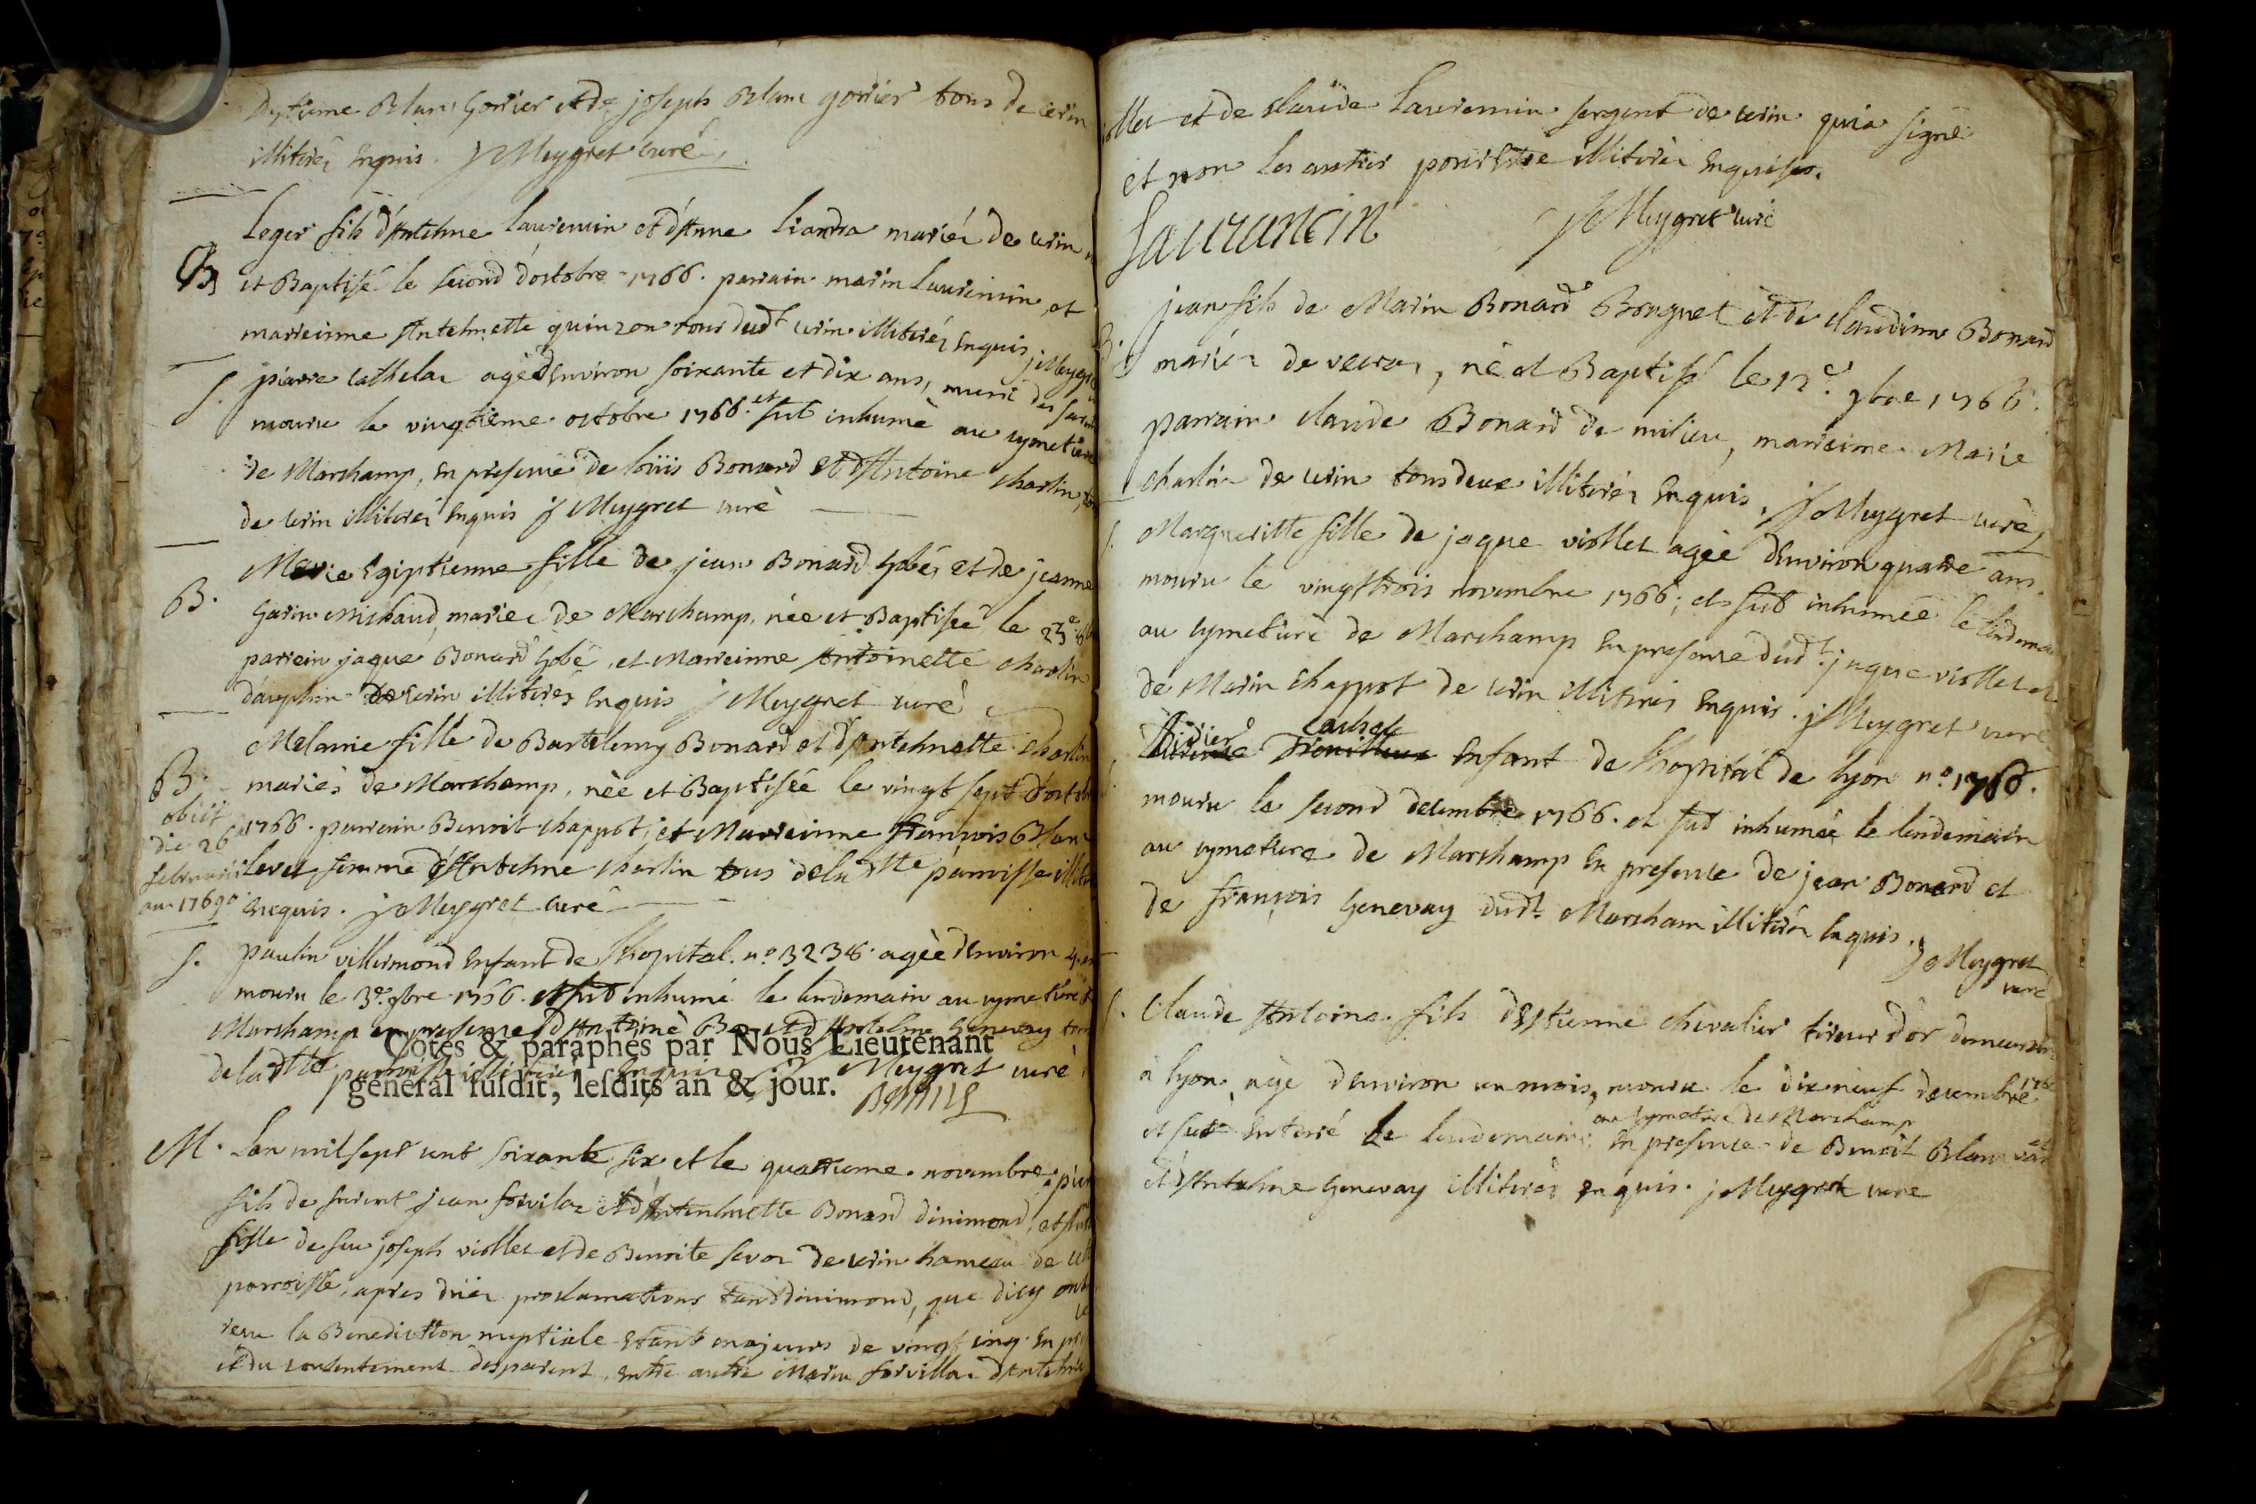 Dytieme Blanc Gorrier et de joseph Blanc gorrier tous de cerin
illiterés Enquis. J Meygret curé
Leger fils d'Antelme laurencin et d'Anne liandra mariés de cerin
B et Baptisé le second d'octobre 1766. parrain marin laurencin et
marreinne Antelmette quinson tous dudt cerin illiterés Enquis j Meygret
S. pierre cathelar agé d'Environ soixante et dix ans, muni des sac
mouru le vingtieme octobre 1766. et fut inhumé au cymetiere
de Marchamp, En presence de loüis Bonard et d'Antoine charlin
de cerin illiterés Enquis J Meygret curé
B. Marie Egiptienne fille de jean Bonard Gobé, et de jeanne
Garin michaud, mariés de Marchamp, née et Baptisée le 23e 8bre
parrein jaque Bonard Gobé, et Marreinne Antoinette charlin
dauphin de cerin illiterés Enquis J Meygret curé
Melanie fille de Bartelemy Bonard et d'Antelmette charlin
B. mariés de Marchamp, née et Baptisée le vingt sept d'octobre
obiit die 26 februarii an 1769
1766. parrain Benoit chappot, et Marreinne françois Blanc
levet femme d'Antelme charlin tous de la dtte parroisse
Enquis. J Meygret curé
S. paulin villermond Enfant de l'hopital. n° 3238. agée d'Environ 4
mouru le 3e. 9bre 1766. et fut inhumé le lendemain au cymetiere
Marchamp en presence d'Antoine B et d'Antelme Genevay
Cotés & paraphés par Nous Lieutenant
de la dtte parroisse illiterés Enquis J Meygret curé
général susdit, lesdits an & jour.
M. Lan mil sept cent soixante six et le quatrieme novembre
fils de furent jean forvilar et d'Antelmette Bonard dinimond, et
fille de feu joseph viollet et de Benoite sevoz de cerin hameau de
parroisse, apres duës proclamations tant dinimond, que dicy ont
reçu la Benediction nuptiale Etant majeurs de vingt cinq. En
et du consentement des parent, entre autre Marin forvillar d'Antelme
viollet et de claude laurencin sergent de cerin qui a signé
et non les autres pour Etre illiterés Enquis.
Laurancin J Meygret curé
jean fils de Marin Bonard Bouquet et de claudine Bonard
mariés de veiraz, né et Baptisé le 12e. 9bre 1766.
parrain claude Bonard de milieu, marreine Marie
charlin de cerin tous deux illiterés Enquis, J Meygret curé
S. Margueritte fille de jaque viollet agée d'Environ quatre ans
mouru le vingt trois novembre 1766; et fut inhumée le lendemain
au cymetiere de Marchamp En presence dudt jaque viollet et
de Marin chappot de cerin illiterés Enquis. j Meygret curé
Didier Enfant de l'hopital de lyon n° 1766.
mouru le second decembre 1766. et fut inhumée le lendemain
au cymetiere de Marchamp En presence de jean Bonard et
de françois Genevay dudt Marcham illiterés Enquis.
J Meygret
curé
S. Claude Antoine fils d'Etienne chevalier tireur d'or demeurant
à lyon, agé d'environ un mois, mouru le dix neuf decembre 1766
et fut Enterré le lendemain au cymetiere de Marchamp En presence de Benoit Blanc
et d'Antelme Genevay illiterés Enquis. j Meygret curé